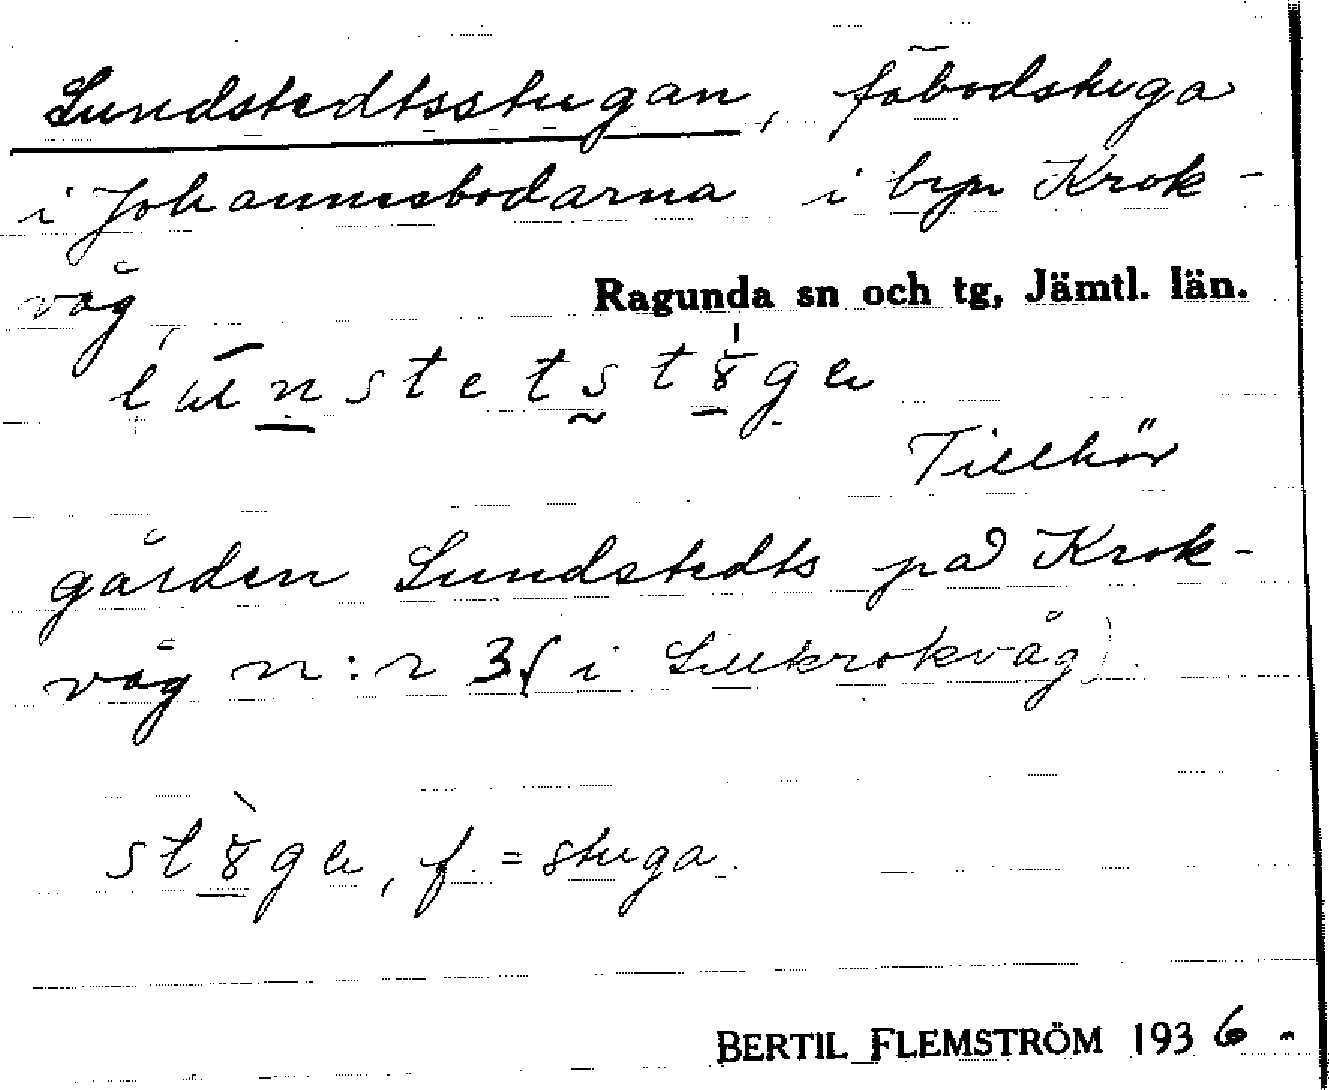 Lundstedtsstugan, fäbodstuga
i Johannesbodarna i byn Krok-
våg,
Ragunda sn och tg, Jämtl. län.
Tillhör
gården Lundstedts på Krok-
våg n:r 3 (i Lillkrokvåg).
f. = stuga.
BERTIL FLEMSTRÖM 1936